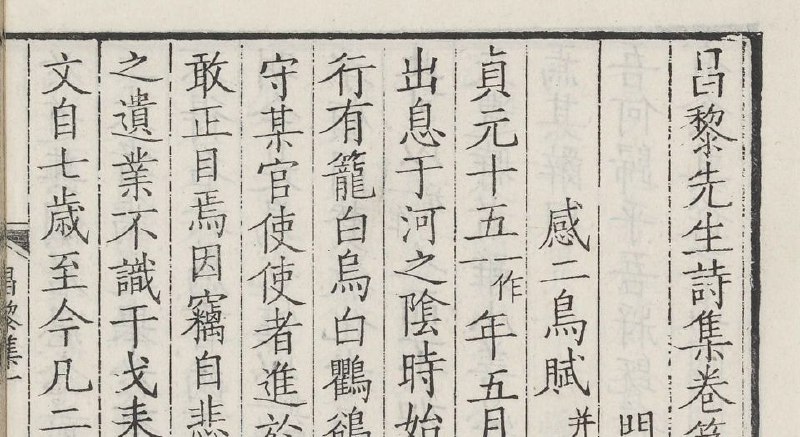 昌黎先生詩集卷
門
感二鳥賦并
貞元十五一作年五月
出息于河之陰時始
行有籠白烏白鸜鵒
守某官使使者進於
敢正目焉因竊自悲
之遺業不識干戈耒
文自七歳至今凡二
昌黎集一